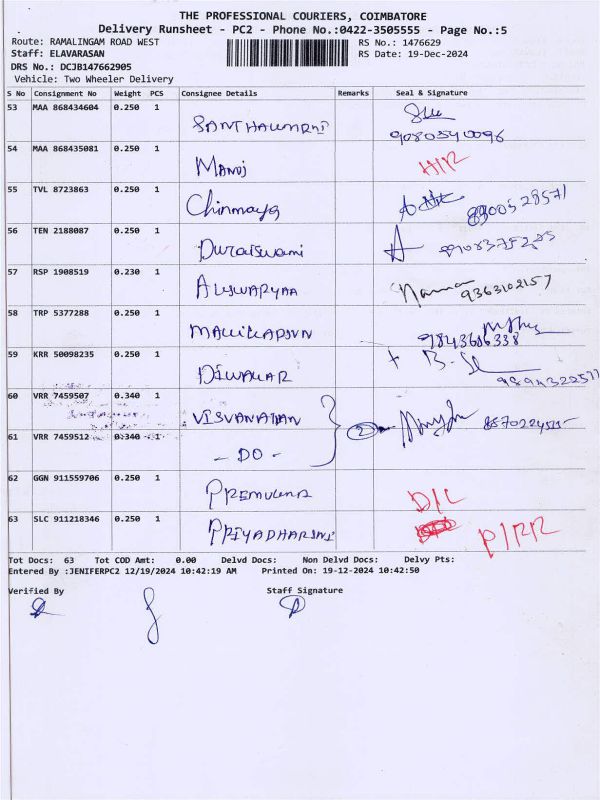 THE PROFESSIONAL COURIERS, COIMBATORE
Delivery Runsheet - PC2 - Phone No.:0422-3505555 - Page No.:5
Route: RAMALINGAM ROAD WEST RS No.: 1476629
Staff: ELAVARASAN RS Date: 19-Dec-2024
DRS No.: DCJB147662905
Vehicle: Two Wheeler Delivery
S No Consignment No Weight PCS Consignee Details Remarks Seal & Signature
53 MAA 868434604 0.250 1
54 MAA 868435081 0.250 1 MANOJ
55 TVL 8723863 0.250 1 Chinmaya
56 TEN 2188087 0.250 1 Duraiswami
57 RSP 1908519 0.230 1
9363102157
58 TRP 5377288 0.250 1
59 KRR 50098235 0.250 1 DIWAKAR
60 VRR 7459507 0.340 1 VISVANATHAN
2
61 VRR 7459512 0.340 1 - DO -
62 GGN 911559706 0.250 1 D/L
63 SLC 911218346 0.250 1 PRIYADHARSINI
Tot Docs: 63 Tot COD Amt: 0.00 Delvd Docs: Non Delvd Docs: Delvy Pts:
Entered By :JENIFERPC2 12/19/2024 10:42:19 AM Printed On: 19-12-2024 10:42:50
Verified By Staff Signature